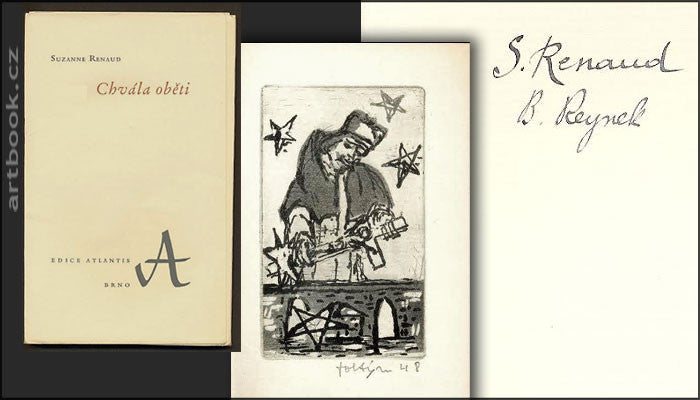 artbook.cz
SUZANNE RENAUD
Chvála oběti
EDICE ATLANTIS
A
BRNO
48
S. Renaud
B. Reynek